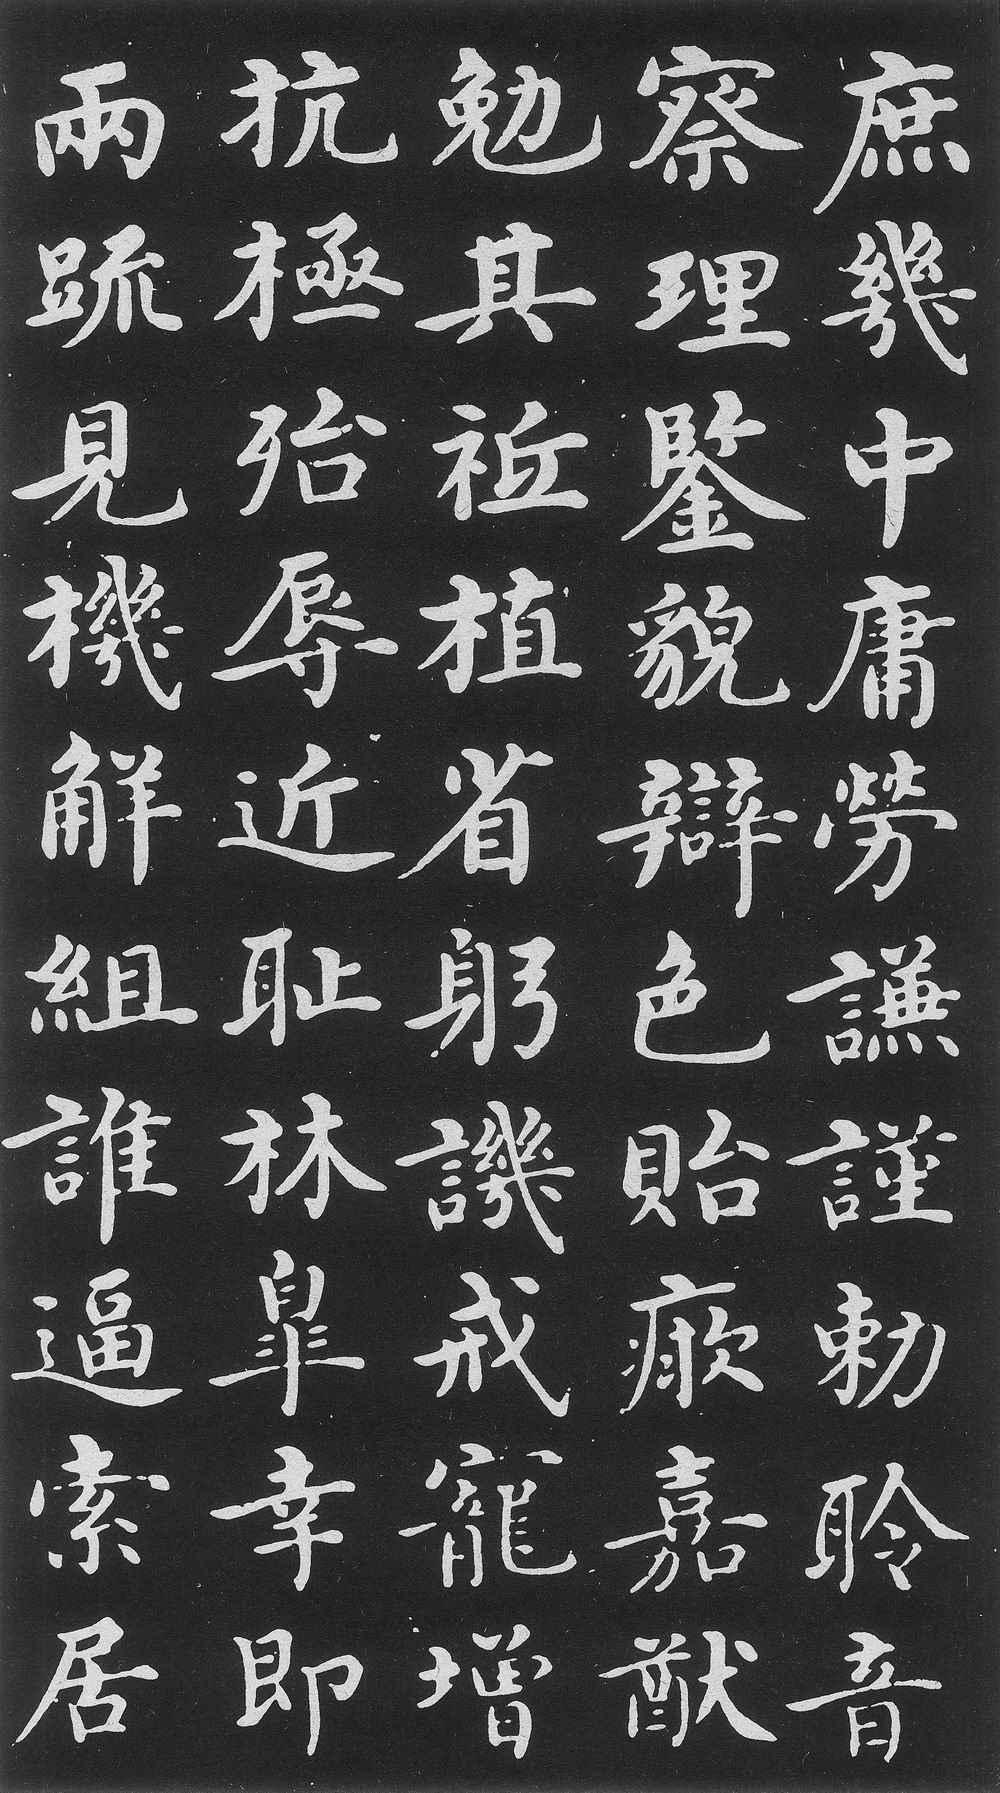 庶幾中庸勞謙謹勅聆音
察理鑒貌辯色貽厥嘉猷
勉其祗植省躬譏戒寵增
抗極殆辱近恥林皐幸即
兩疏見機解組誰逼索居